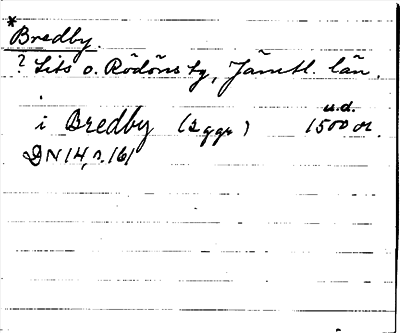 *
Bredby.
? Lits o. Rödöns tg, Jämtl. län.
u.d.
i Bredby (2 ggr) 1500 o.
DN 14, s. 161